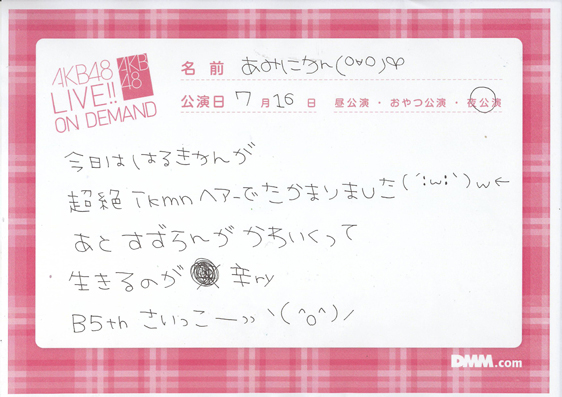 AKB48
LIVE!!
ON DEMAND
AKB
48
名前 あみにかん(O∀O)
公演日 7月16日 昼公演・おやつ公演・夜公演
今日ははるきかんが
超絶Tkmnヘアーでたかまりました(´;w;`)w←
あとすずらんがかわいくって
生きるのが 辛ry
B5thさいっこーッッヽ(^o^)ノ
DMM.com